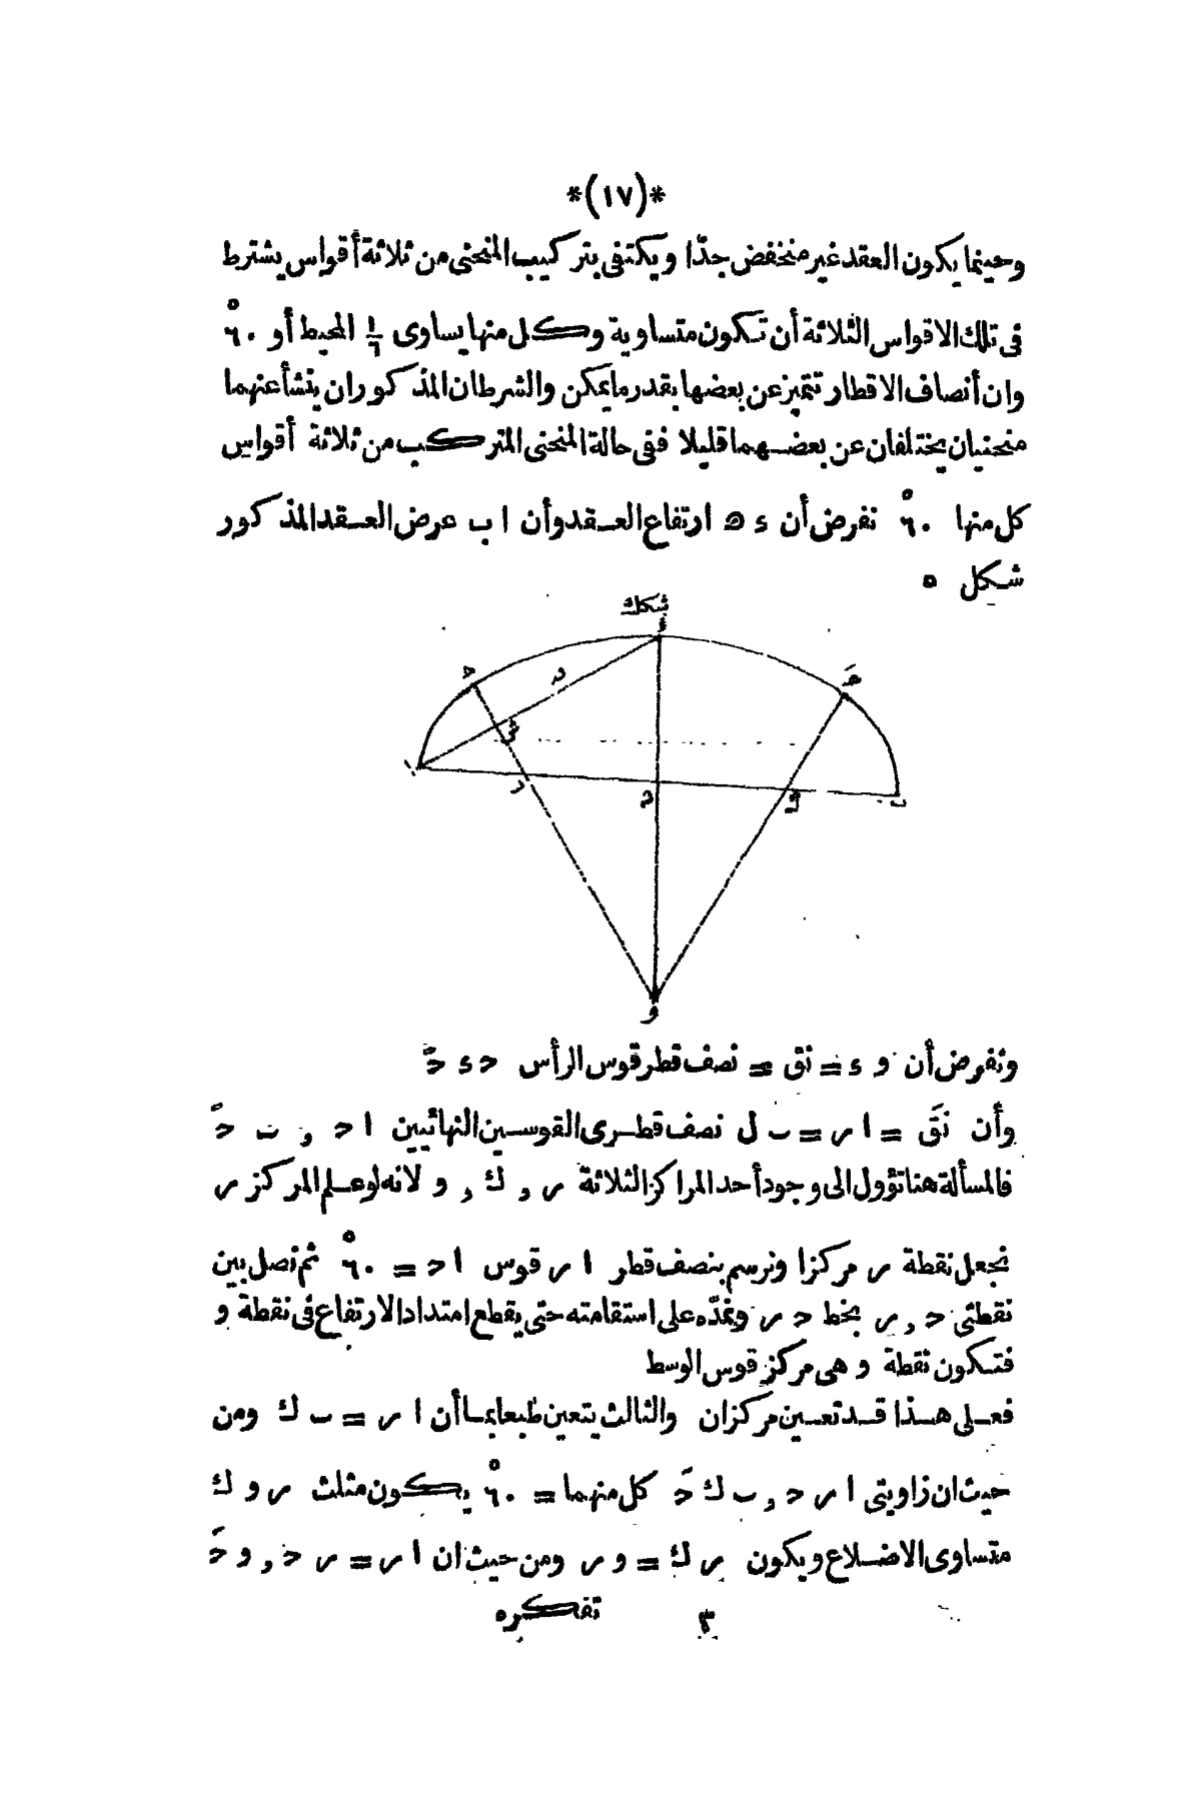 *(١٧)*
وحينما يكون العقد غير منخفض جدّا ويكتفى بتركيب المنحنى من ثلاثة أقواس يشترط
فى تلك الاقواس الثلاثة أن تكون متساوية وكل منها يساوى ١/٦ المحيط أو ٦٠°
وان أنصاف الاقطار تتميز عن بعضها بقدر ما يمكن والشرطان المذكوران ينشأ عنهما
منحنيان يختلفان عن بعضهما قليلا ففى حالة المنحنى المتركب من ثلاثة أقواس
كل منها ٦٠° نفرض أن ء ه ارتفاع العقد وأن ا ب عرض العقد المذكور
شكل ٥
ء
حَ
ح
ا
ر
ك
ب
و
ونفرض أن و ء = نق = نصف قطر قوس الرأس ح ء حَ
وأن نقَ = ا ر = ب ل نصف قطرى القوسين النهائيين ا ح , ب حَ
فالمسألة هنا تؤول الى وجود أحد المراكز الثلاثة ر , ك , و لانه لو علم المركز ر
نجعل نقطة ر مركزا ونرسم بنصف قطر ا ر قوس ا ح = ٦٠° ثم نصل بين
نقطتى ح , ر بخط ح ر ونمدّه على استقامته حتى يقطع امتداد الارتفاع فى نقطة و
فتكون نقطة و هى مركز قوس الوسط
فعلى هذا قد تعين مركزان والثالث يتعين طبعا بما أن ا ر = ب ك ومن
حيث ان زاويتى ا ر ح , ب ك حَ كل منهما = ٦٠° يكون مثلث ر و ك
متساوى الاضلاع ويكون ر ك = و ر ومن حيث ان ا ر = ر ح , و حَ
٣ تفكره